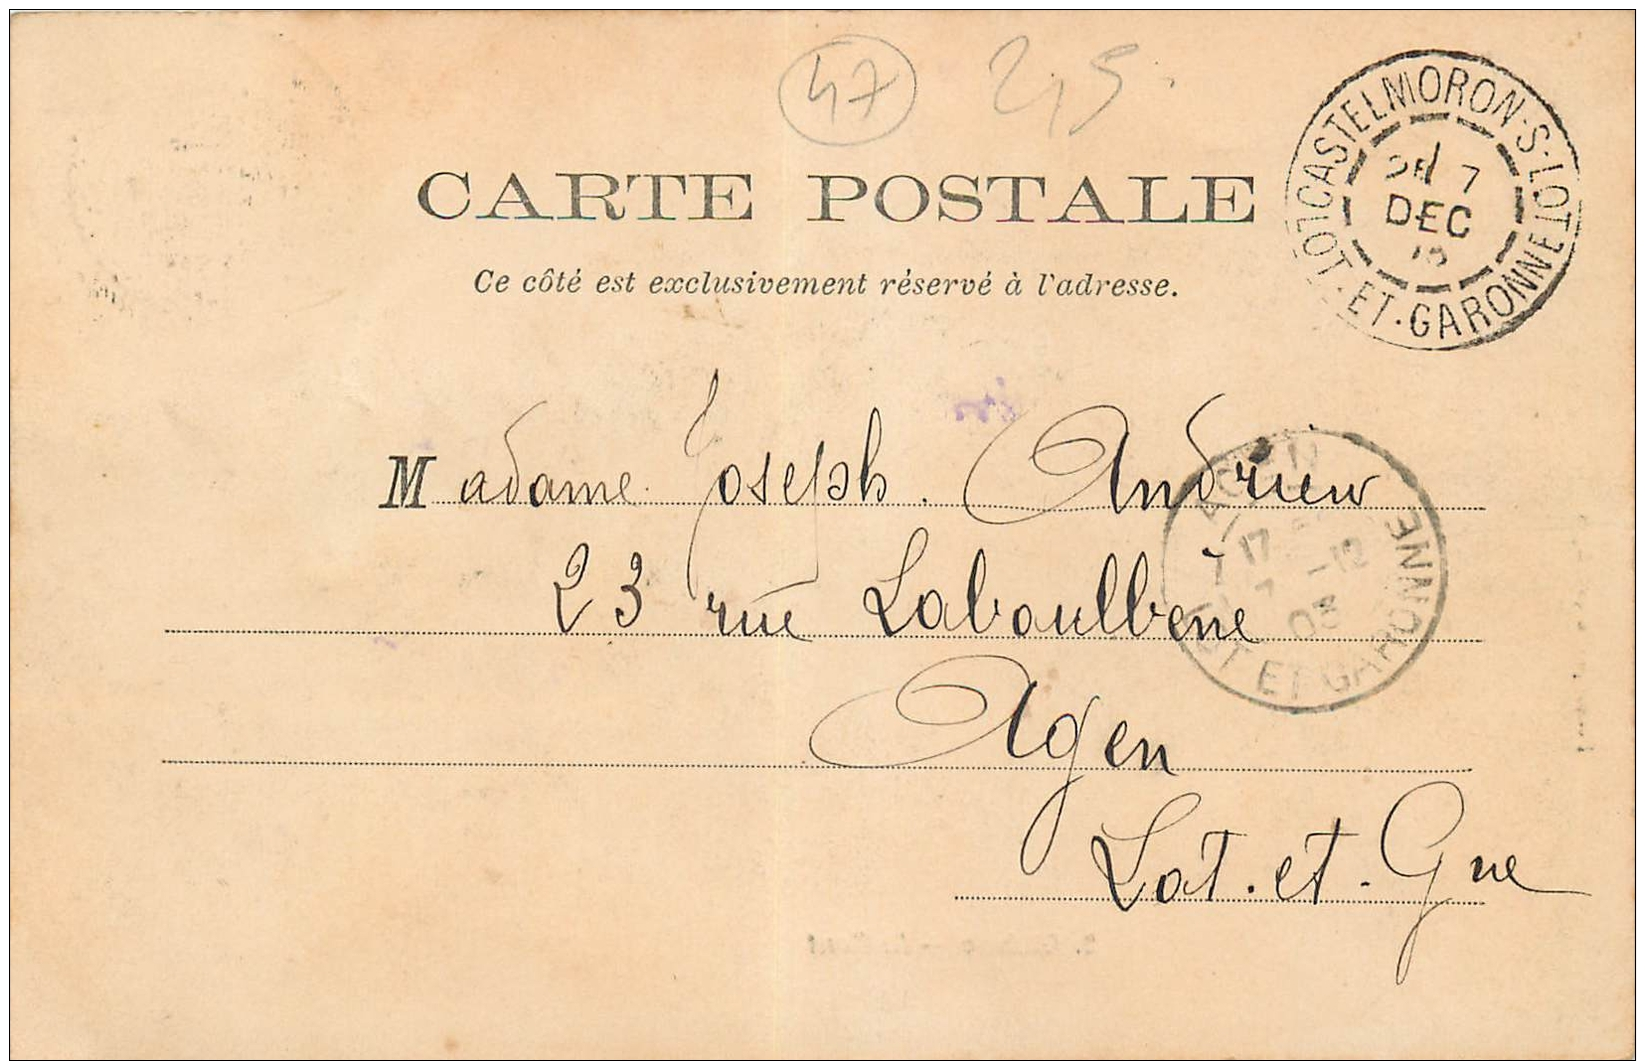 47 2,5
CARTE POSTALE
Ce côté est exclusivement réservé à l'adresse.
CASTELMORON-S-LOT
7
DEC
LOT-ET-GARONNE
Madame Joseph Andrieu
23 rue Laboulbène
Agen
Lot.et.Gne
AGEN
17
7 -12
03
LOT ET GARONNE